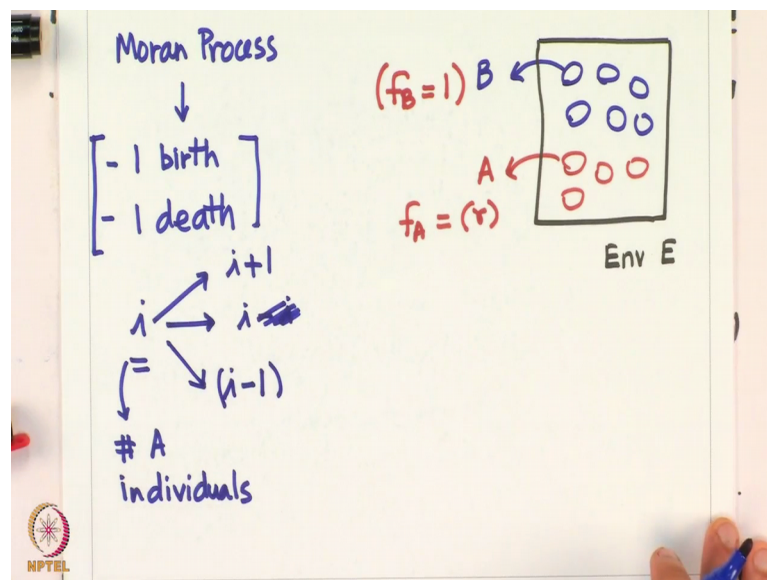 Moran Process
- 1 birth
- 1 death
i+1
i
i
(i-1)
=
# A
individuals
(f_B = 1) B
A
f_A = (r)
Env E
NPTEL